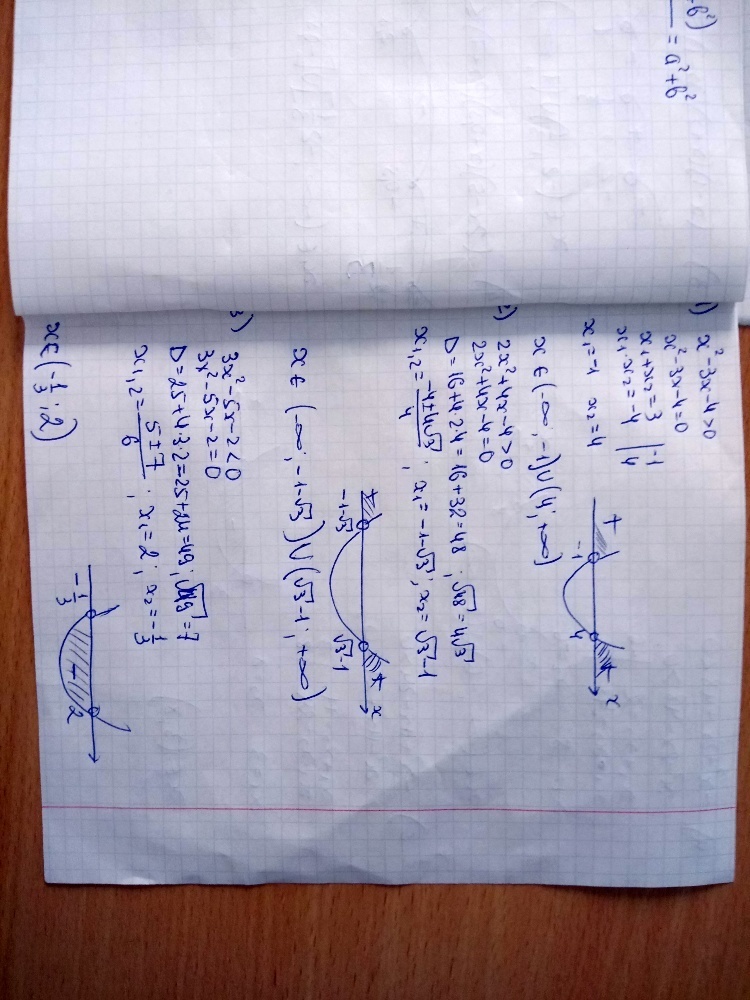 +b²)
= a²+b²
1) x²-3x-4>0
x²-3x-4=0
x1+x2=3 | -1
x1·x2=-4 | 4
x1=-1 x2=4
+ -1 4 + x
x ∈ (-∞; -1)∪(4; +∞)
2) 2x²+4x-4>0
2x²+4x-4=0
D=16+4·2·4=16+32=48; √48=4√3
x1,2=(-4±4√3)/4; x1=-1-√3; x2=√3-1
+ -1-√3 √3-1 + x
x ∈ (-∞; -1-√3)∪(√3-1; +∞)
3) 3x²-5x-2<0
3x²-5x-2=0
D=25+4·3·2=25+24=49; √49=7
x1,2=(5±7)/6; x1=2; x2=-1/3
-1/3 2
x∈(-1/3; 2)